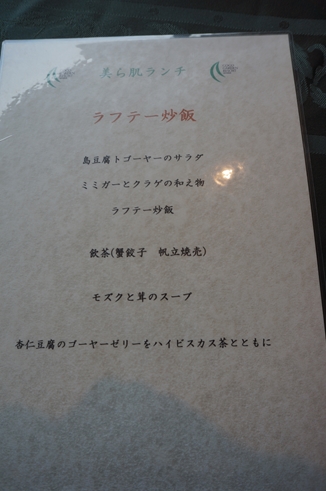 美ら肌ランチ
ラフテー炒飯
島豆腐トゴーヤーのサラダ
ミミガーとクラゲの和え物
ラフテー炒飯
飲茶(蟹餃子 帆立焼売)
モズクと茸のスープ
杏仁豆腐のゴーヤーゼリーをハイビスカス茶とともに